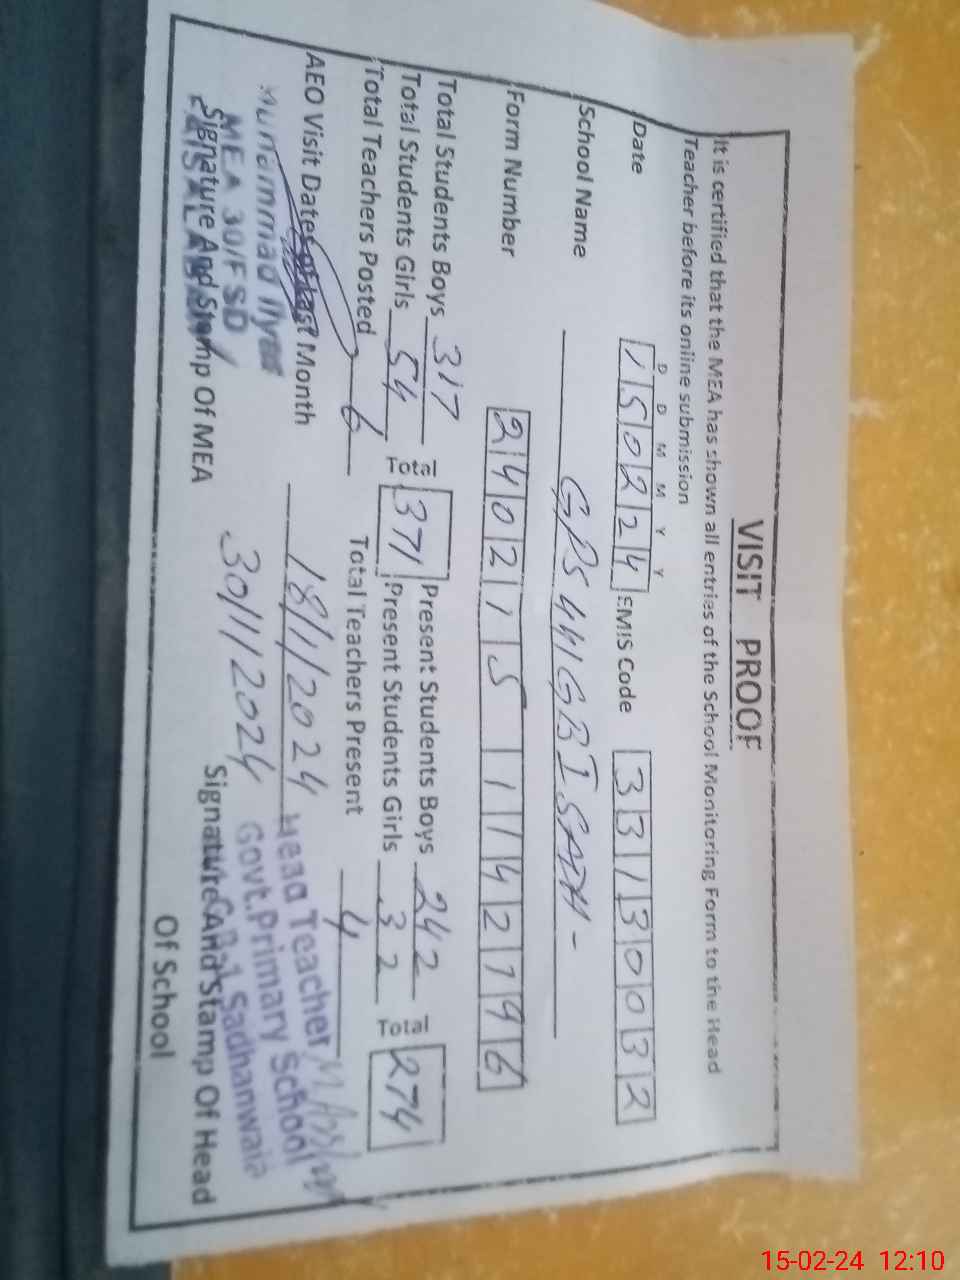 VISIT PROOF
It is certified that the MEA has shown all entries of the School Monitoring Form to the Head
Teacher before its online submission
D D M M Y Y
Date 150224 EMIS Code 33130032
School Name GPS 441GB I
Form Number 2402151142796
Total Students Boys 317 Total 371 Present Students Boys 242 Total 274
Total Students Girls 54 Present Students Girls 32
Total Teachers Posted 6 Total Teachers Present 4
AEO Visit Dates of Last Month 18/1/2024
30/1/2024
Muhammad Ilyas
MEA 30/FSD
FAISALABAD
Signature And Stamp Of MEA
Head Teacher
Govt. Primary School
Signature And Stamp Of Head
Of School
15-02-24 12:10